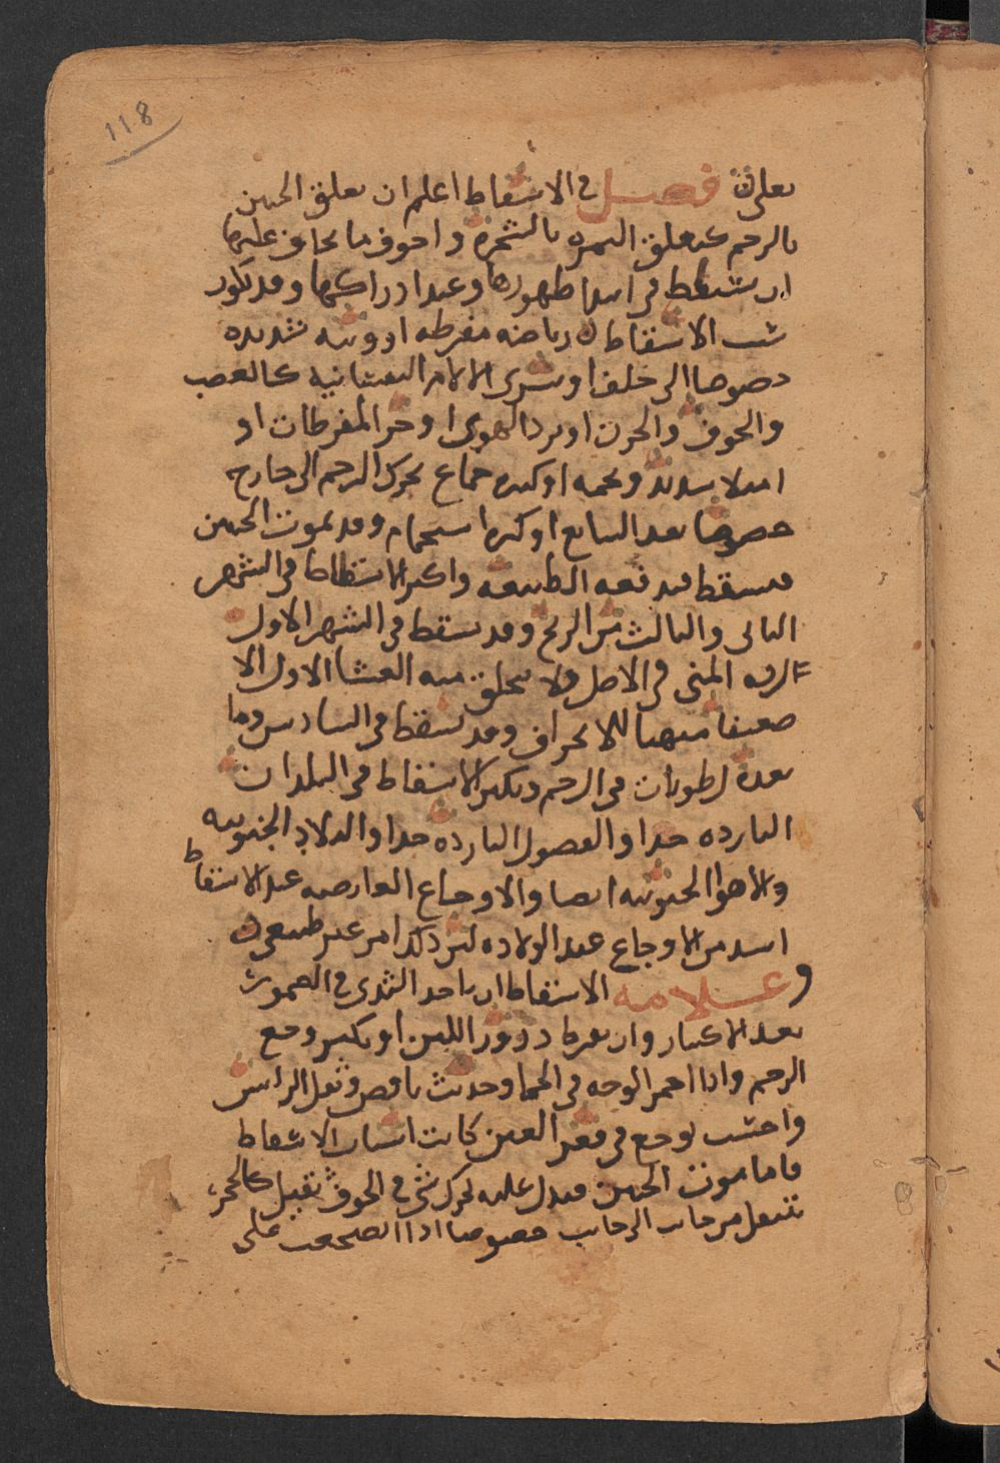 118
تعالى فصل في الاسقاط اعلم ان تعلق الجنين
بالرحم كتعلق الثمرة بالشجرة واخوف ما يخاف عليها
ان تسقط في ابتدا ظهورها وعند ادراكها وقد يكون
سبب الاسقاط رياضه مفرطه او وثبه شديده
خصوصا الى خلف او شي من الالام النفسانيه كالغضب
والخوف والحزن او برد الهوى او حر المفرطان او
امتلا شديد وتخمه او كثره جماع يحرك الرحم الى خارج
خصوصا بعد السابع او كثره استحمام وقد يموت الجنين
فيسقط فتدفعه الطبيعه واكثر الاسقاط في الشهر
الثاني والثالث من الريح وقد يسقط في الشهر الاول
لرقه المني في الاصل فلا يخلق منه الغشا الاول الا
ضعيفا متهيا للانحراق وقد يسقط في السادس وما
بعده لرطوبات في الرحم ويكثر الاسقاط في البلدان
البارده جدا والفصول البارده جدا والبلاد الجنوبيه
والاهوا الجنوبيه ايضا والاوجاع العارضه عند الاسقاط
اشد من الاوجاع عند الولاده لان ذلك امر غير طبيعي
وعلامه الاسقاط ان ياخذ الثدي في الضمور
بعد الاكتناز وان يفرط درور اللبن او يكثر وجع
الرحم واذا احمر الوجه في الحما وحدث نافض وثقل الراس
واحست بوجع في قعر العين كانت اسباب الاسقاط
فاما موت الجنين فيدل عليه تحرك شي في الجوف ثقيل كالحجر
ينتقل من جانب الى جانب خصوصا اذا انضجعت على